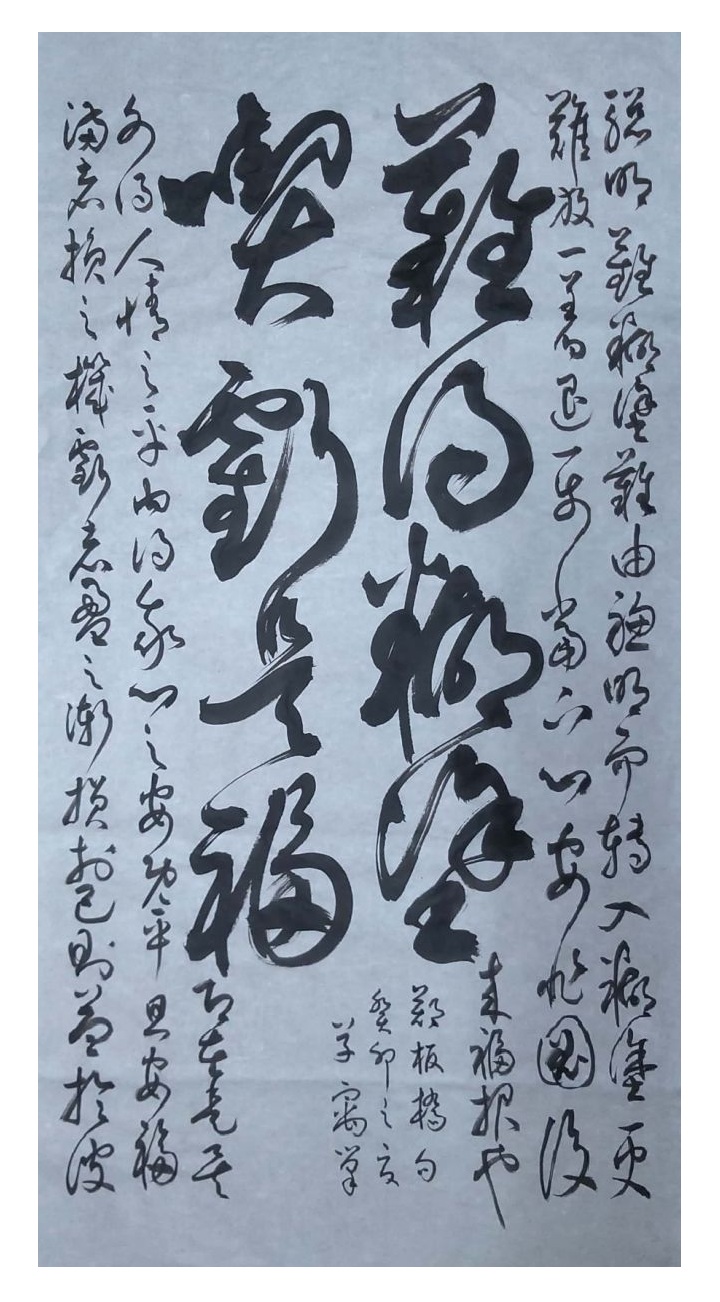 聰明難糊塗難由聰明而轉入糊塗更
難放一著退一步當下心安非圖後
來福報也
難得糊塗
喫虧是福
滿者損之機虧者盈之漸損於己則益於彼
外得人情之平內得我心之安既平且安福
即在是矣
鄭板橋句
癸卯之夏